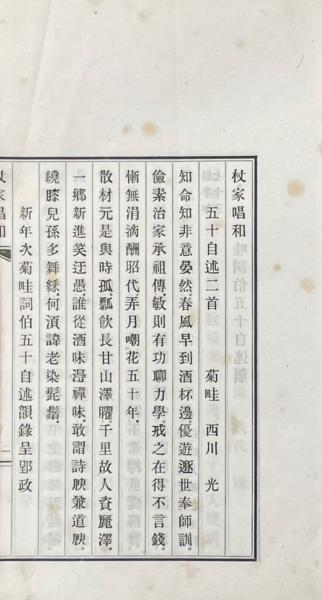 杖家唱和
五十自述二首　菊畦　西川　光
知命知非意晏然春風早到酒杯邊優遊遯世奉師訓
儉素治家承祖傳敏則有功聊力學戒之在得不言錢
慚無涓滴酬昭代弄月嘲花五十年
散材元是與時孤瓢飲長甘山澤癯千里故人資麗澤
一鄉新進笑迂愚誰從酒味澄禪味敢謂詩腴兼道腴
繞膝兒孫多舞綵何須諱老染髭鬚
新年次菊畦詞伯五十自述韻錄呈郢政
杖家唱和
一